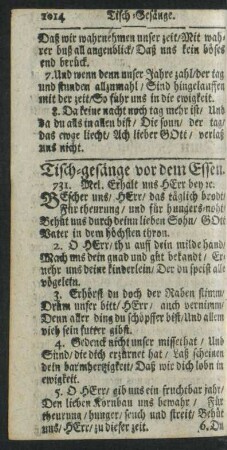 2014 Tisch-Gesänge.
Daß wir wahrnehmen unser zeit/Mit wah-
rer buß all angenblick/ Daß uns kein böses
end berück.
7. Und wenn denn unser Jahre zahl/der tag
und stunden allzumahl/ Sind hingelauffen
mit der zeit/So führ uns in die ewigkeit.
8. Da keine nacht noch tag mehr ist/ Und
da du alls in allen bist/ Die sonn/ der tag/
das ewge liecht/ Ach lieber GOtt/ verlaß
uns nicht.
Tisch-gesänge vor dem Essen.
731. Mel. Erhalt uns HErr bey ıc.
BEscher uns/ HErr/ das täglich brodt/
Für theurung/ und für hungers-noht
Behüt uns durch deinn lieben Sohn/ GOtt
Vater in dem höchsten thron.
2. O HErr/ thu auff dein milde hand/
Mach uns dein gnad und güt bekandt/ Er-
nehr uns deine kinderlein/ Der du speist alle
vögelein.
3. Erhörst du doch der Raben stimm/
Drüm unser bitt/ HErr/ auch vernimm/
Denn aller ding du schöpffer bist/Und allem
vieh sein futter gibst.
4. Gedenck nicht unser missethat/ Und
Sünd/ die dich erzürnet hat/ Laß scheinen
dein barmhertzigkeit/ Daß wir dich lobn in
ewigkeit.
5. O HErr/ gib uns ein fruchtbar jahr/
Den lieben Kornbau uns bewahr/ Für
theurung/hunger/seuch und streit/ Behüt
uns/ HErr/ zu dieser zeit.
6. Du